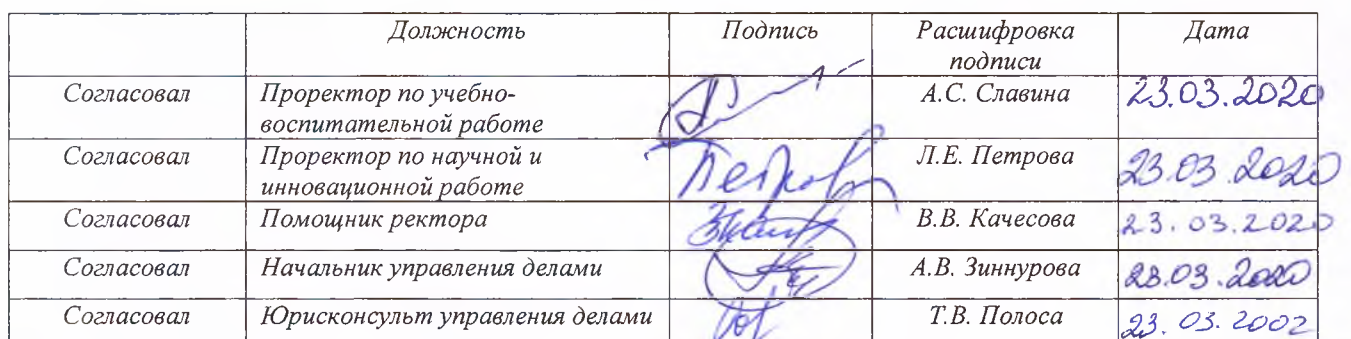 Должность Подпись Расшифровка подписи Дата
Согласовал Проректор по учебно-воспитательной работе А.С. Славина 23.03.2020
Согласовал Проректор по научной и инновационной работе Петрова Л.Е. Петрова 23.03.2020
Согласовал Помощник ректора В.В. Качесова 23.03.2020
Согласовал Начальник управления делами А.В. Зиннурова 23.03.2020
Согласовал Юрисконсульт управления делами Т.В. Полоса 23.03.2002